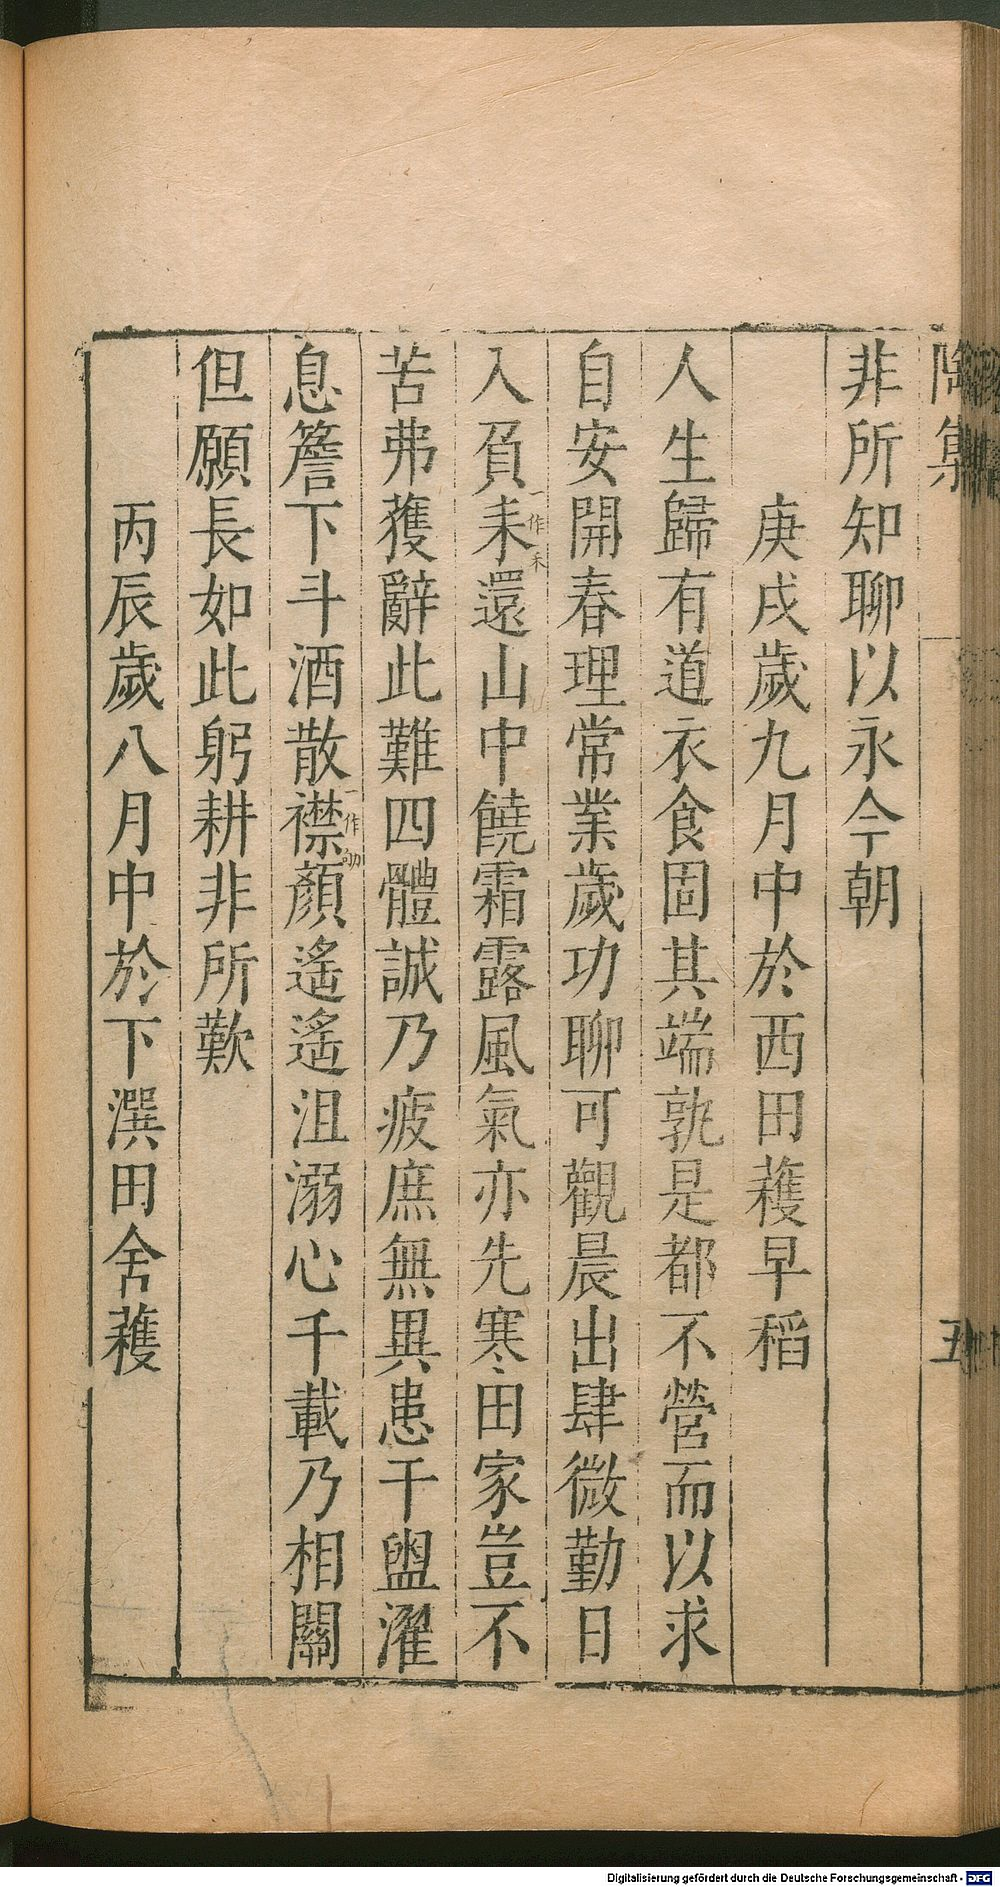 陶集
五
非所知聊以永今朝
庚戌歲九月中於西田穫早稻
人生歸有道衣食固其端孰是都不營而以求
自安開春理常業歲功聊可觀晨出肆微勤日
入負耒一作禾還山中饒霜露風氣亦先寒田家豈不
苦弗獲辭此難四體誠乃疲庶無異患干盥濯
息簷下斗酒散襟一作劬顏遙遙沮溺心千載乃相關
但願長如此躬耕非所歎
丙辰歲八月中於下潠田舍穫
Digitalisierung gefördert durch die Deutsche Forschungsgemeinschaft - DFG